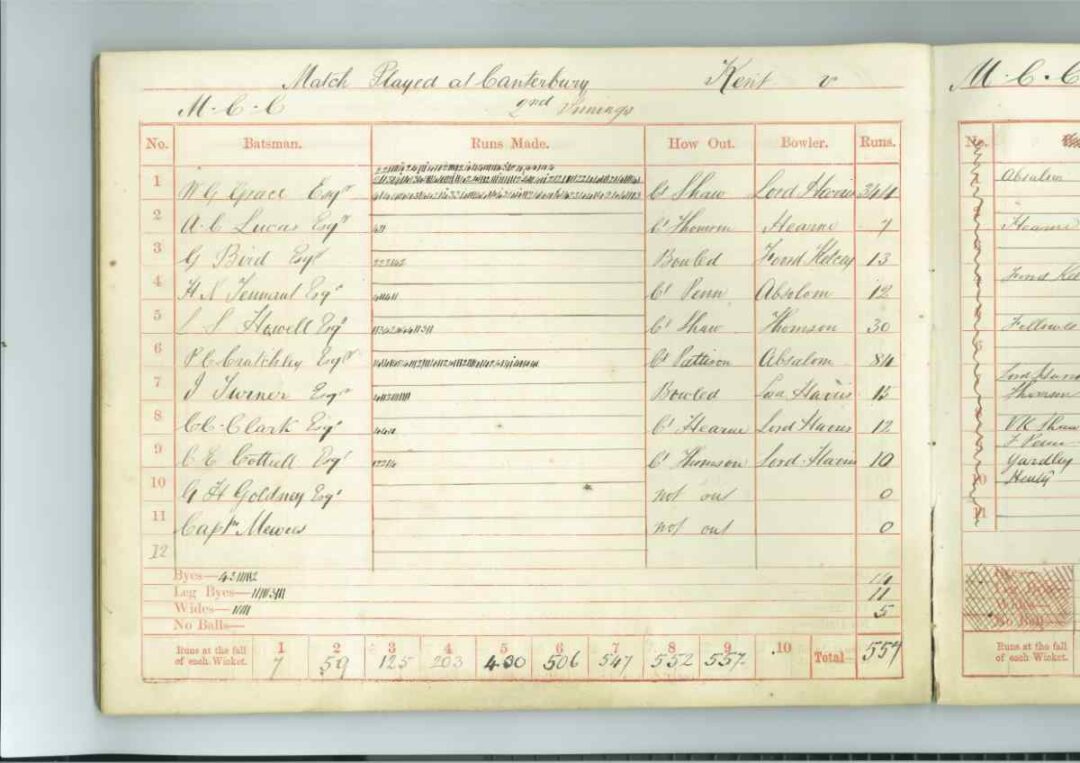 Match Played at Canterbury Kent v
M.C.C 2nd Innings
No. Batsman. Runs Made. How Out. Bowler. Runs.
1 W G Grace Esqr Ct Shaw Lord Harris 344
2 A. C Lucas Esqr Ct Thomson Hearne 7
3 G Bird Esqr Bowled Foord Kelcey 13
4 H N Tennant Esqr Ct Penn Absolom 12
5 Howell Esqr Ct Shaw Thomson 30
6 P C Crutchley Esqr Ct Pattison Absalom 84
7 J Turner Esqr Bowled Harris 15
8 C C Clark Esqr Ct Hearne Lord Harris 12
9 C E Cottrell Esqr Ct Thomson Lord Harris 10
10 G H Goldney Esqr not out 0
11 Captn Meares not out 0
12
Byes— 14
Leg Byes— 11
Wides— 5
No Balls—
Runs at the fall of each Wicket. 1 2 3 4 5 6 7 8 9 10 Total— 557
7 59 125 203 430 506 547 552 557
M.C.C
No.
Absolom
Hearne
Foord Kel
Fellowes
Lord Harris
Thomson
V K Shaw
F Penn
Yardley
10 Henty
11
Wides—
No Ball
Runs at the fall
of each Wicket.